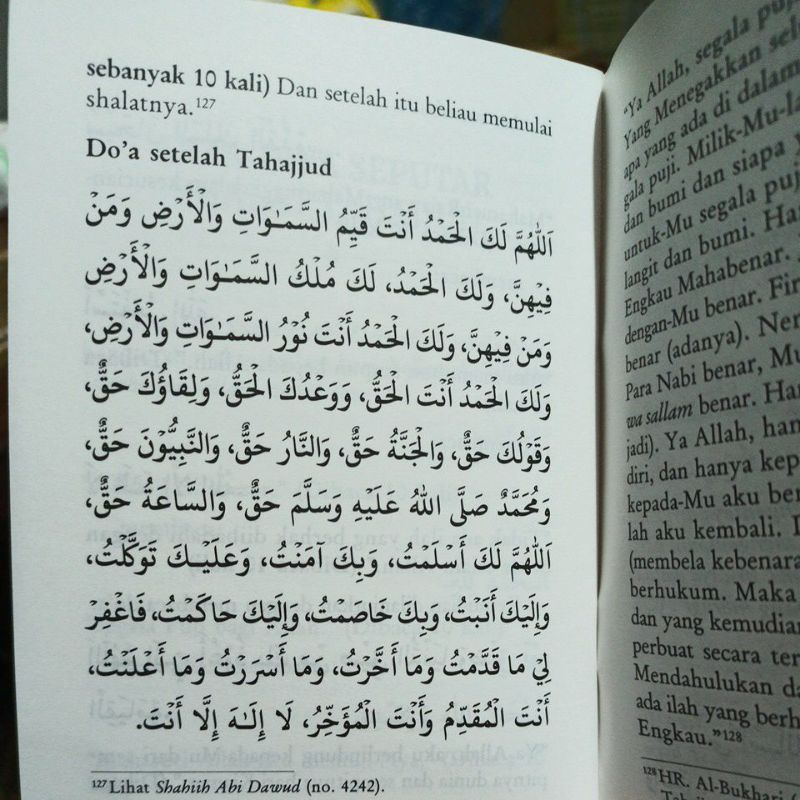 sebanyak 10 kali) Dan setelah itu beliau memulai
shalatnya.¹²⁷
Do'a setelah Tahajjud
اَللّٰهُمَّ لَكَ الْحَمْدُ أَنْتَ قَيِّمُ السَّمَـٰوَاتِ وَالْأَرْضِ وَمَنْ
فِيْهِنَّ، وَلَكَ الْحَمْدُ، لَكَ مُلْكُ السَّمَـٰوَاتِ وَالْأَرْضِ
وَمَنْ فِيْهِنَّ، وَلَكَ الْحَمْدُ أَنْتَ نُوْرُ السَّمَـٰوَاتِ وَالْأَرْضِ،
وَلَكَ الْحَمْدُ أَنْتَ الْحَقُّ، وَوَعْدُكَ الْحَقُّ، وَلِقَاؤُكَ حَقٌّ،
وَقَوْلُكَ حَقٌّ، وَالْجَنَّةُ حَقٌّ، وَالنَّارُ حَقٌّ، وَالنَّبِيُّوْنَ حَقٌّ،
وَمُحَمَّدٌ صَلَّى اللهُ عَلَيْهِ وَسَلَّمَ حَقٌّ، وَالسَّاعَةُ حَقٌّ،
اَللّٰهُمَّ لَكَ أَسْلَمْتُ، وَبِكَ آمَنْتُ، وَعَلَيْـكَ تَوَكَّلْتُ،
وَإِلَيْكَ أَنَبْتُ، وَبِكَ خَاصَمْتُ، وَإِلَيْكَ حَاكَمْتُ، فَاغْفِرْ
لِيْ مَا قَدَّمْتُ وَمَا أَخَّرْتُ، وَمَا أَسْرَرْتُ وَمَا أَعْلَنْتُ،
أَنْتَ الْمُقَدِّمُ وَأَنْتَ الْمُؤَخِّرُ، لَا إِلَـٰهَ إِلَّا أَنْتَ.
¹²⁷Lihat Shahiih Abi Dawud (no. 4242).
"Ya Allah, segala puji
Yang Menegakkan
apa yang ada di dalam
puji. Milik-Mu-
dan bumi dan siapa
untuk-Mu segala puj
langit dan bumi. Ha
Engkau Mahabenar.
dengan-Mu benar. Fir
benar (adanya). Ner
Para Nabi benar, Mu
wa sallam benar. Ha
jadi). Ya Allah, han
diri, dan hanya kep
kepada-Mu aku ber
lah aku kembali.
(membela kebenara
berhukum. Maka
dan yang kemudian
perbuat secara ter
Mendahulukan da
ada ilah yang berh
Engkau."¹²⁸
¹²⁸HR. Al-Bukhari